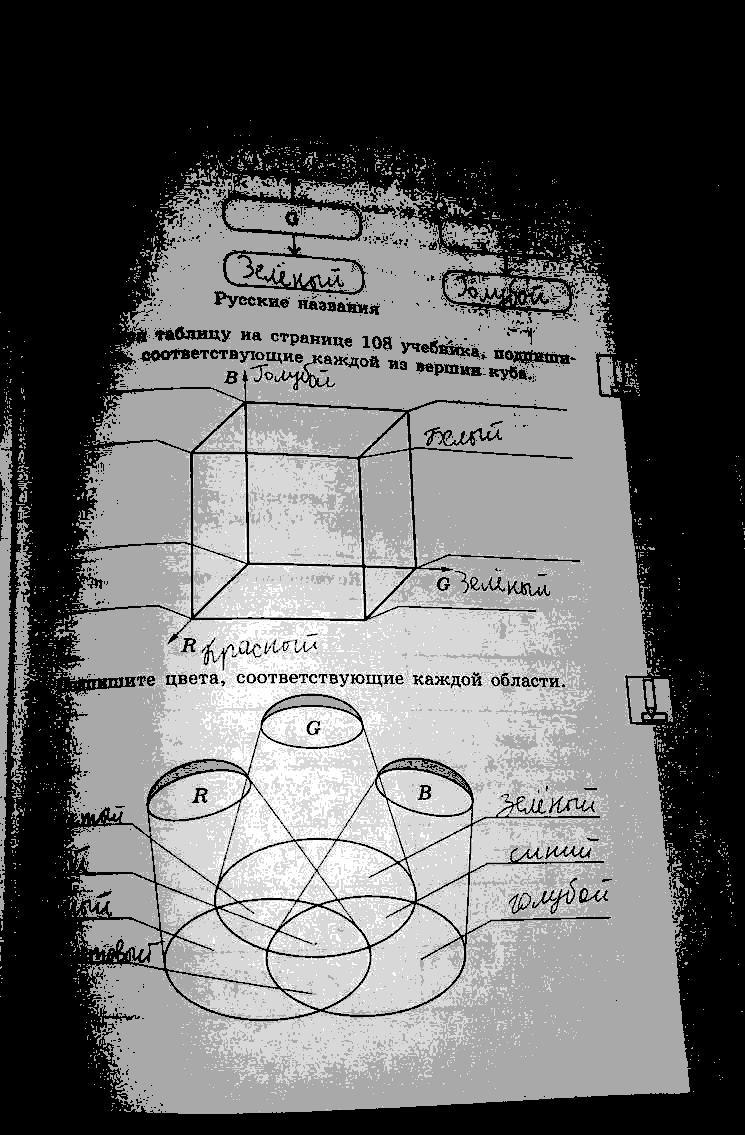 G
Зелёный
Голубой
Русские названия
таблицу на странице 108 учебника, подпиши-
соответствующие каждой из вершин куба.
B Голубой
Белый
G Зелёный
R Красный
пишите цвета, соответствующие каждой области.
G
R
B
зелёный
синий
голубой